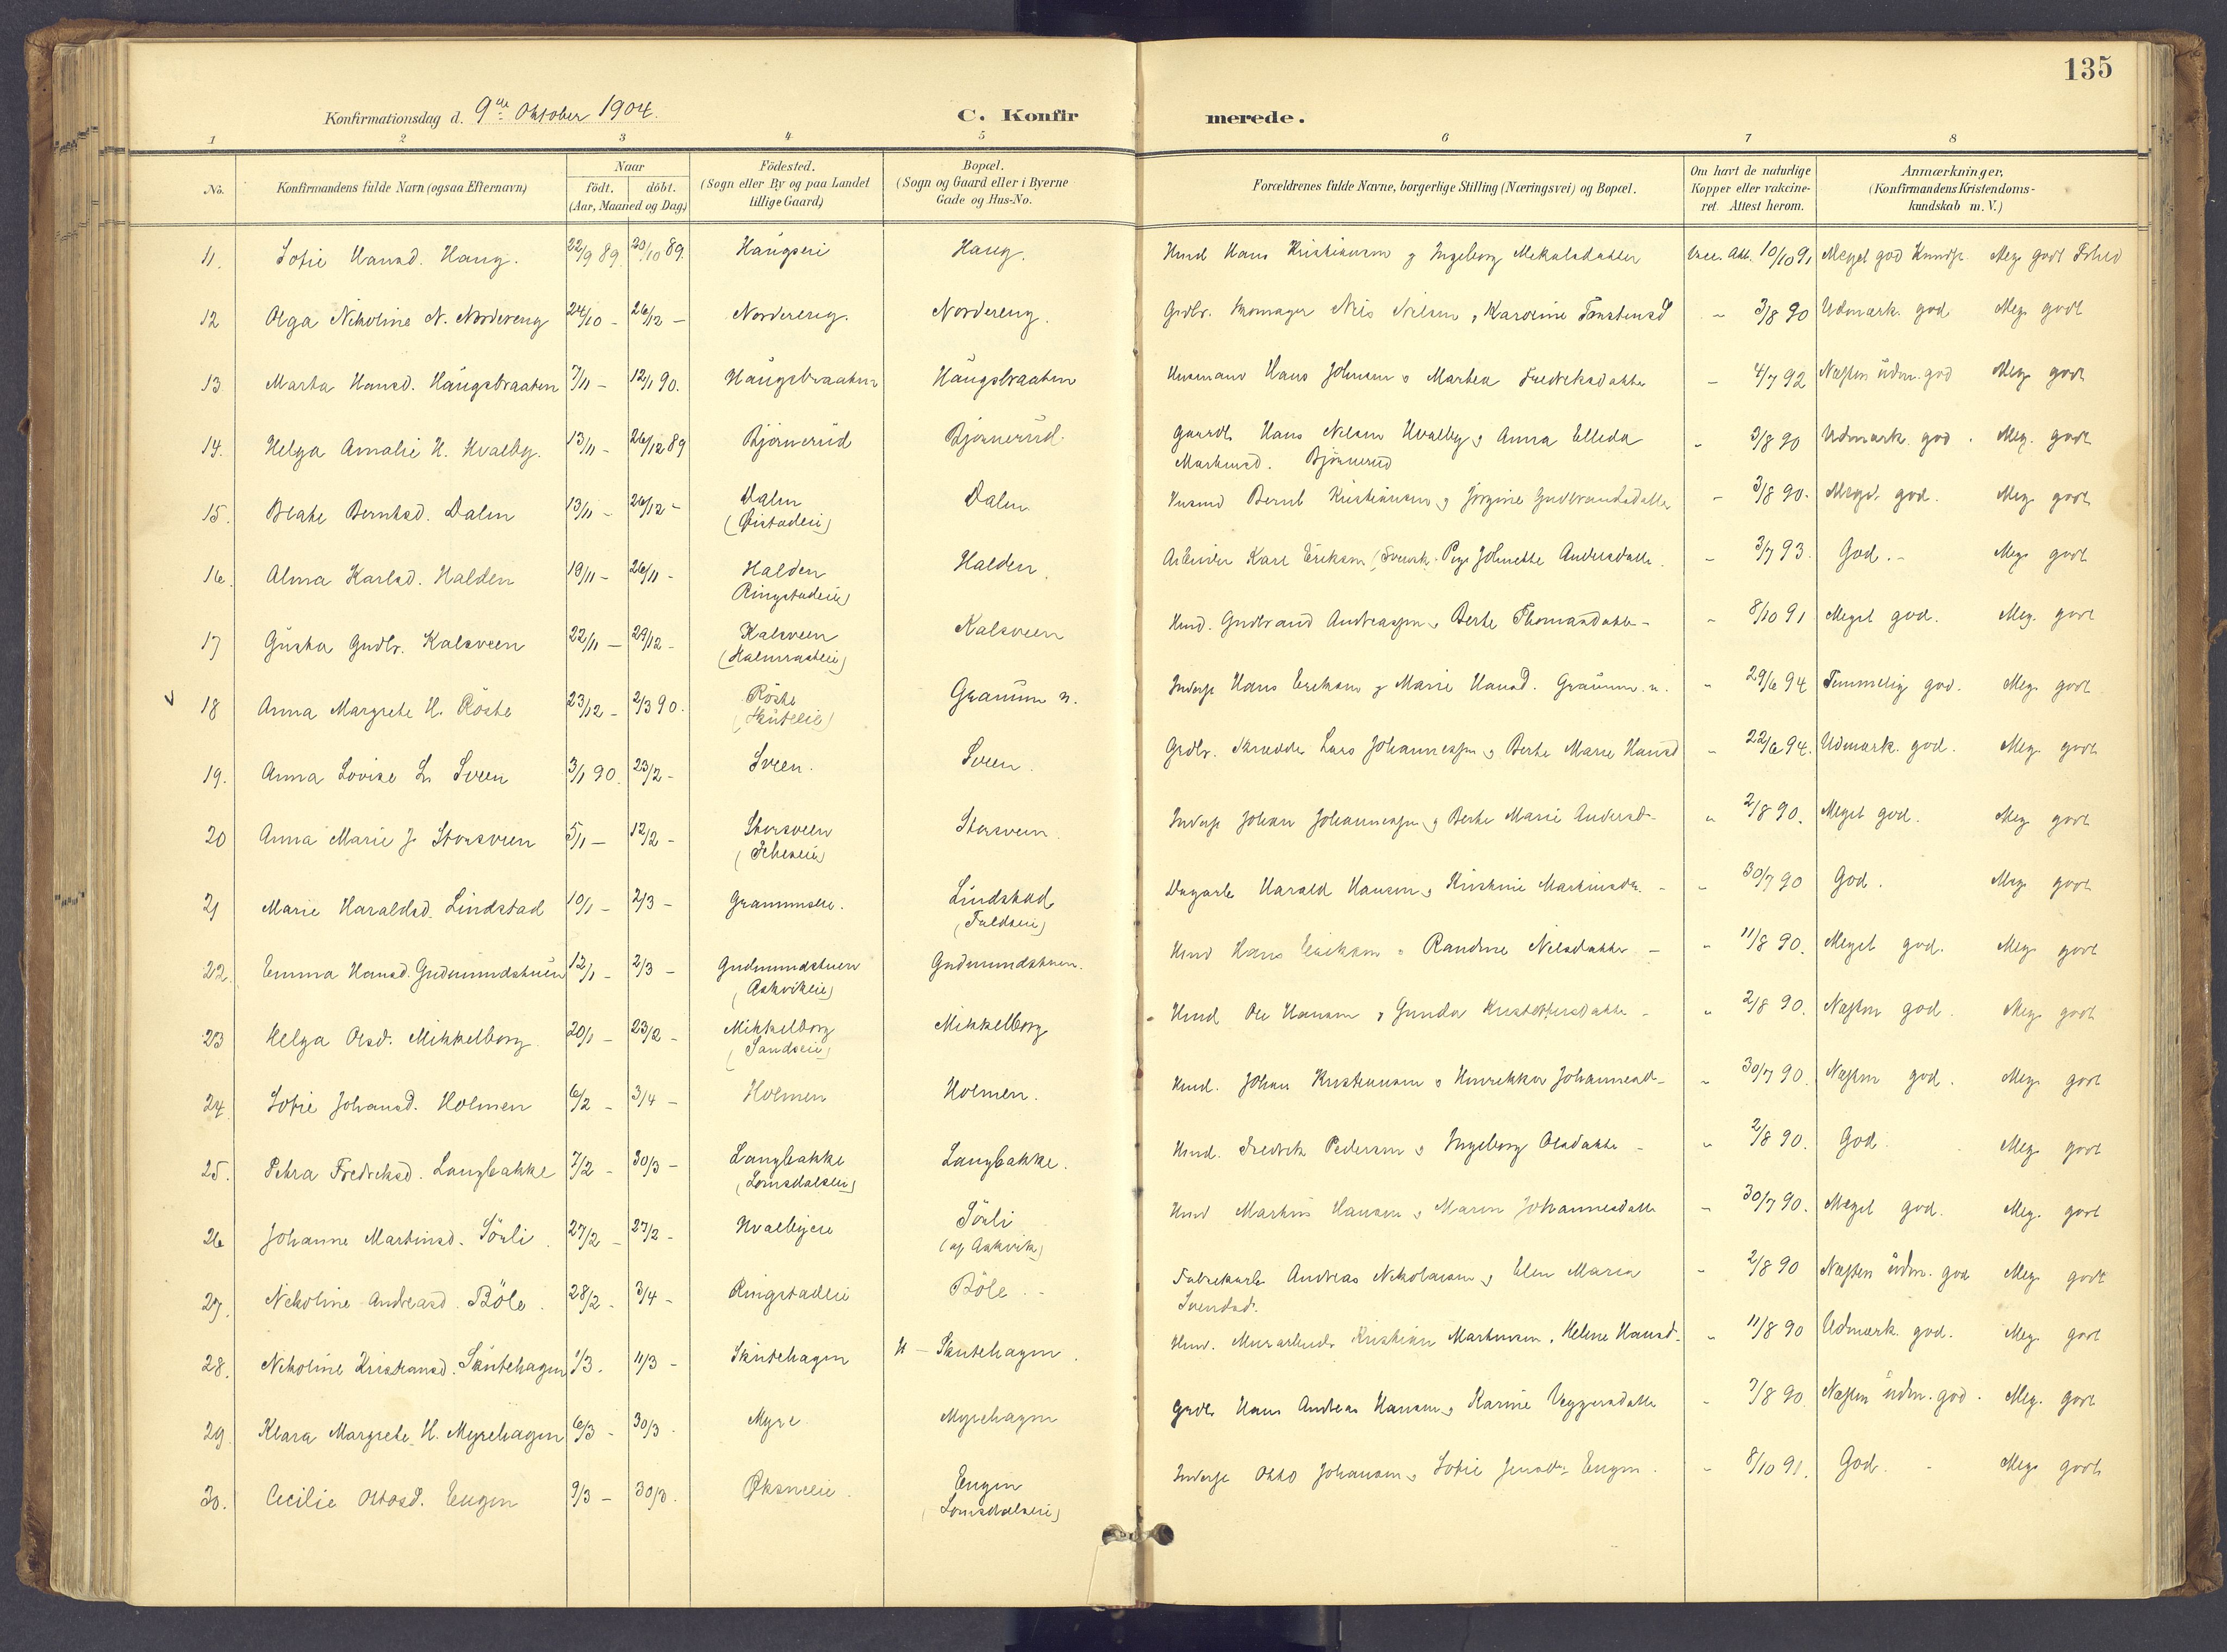 135
Konfirmationsdag d. 9de Oktober 1904.
C. Konfirmerede.
1 2 3 4 5 6 7 8
No.
Konfirmandens fulde Navn (ogsaa Efternavn)
Naar
født. døbt.
(Aar, Maaned og Dag)
Födested.
(Sogn eller By og paa Landet
tillige Gaard)
Bopæl.
(Sogn og Gaard eller i Byerne
Gade og Hus-No.
Forældrenes fulde Navne, borgerlige Stilling (Næringsvei) og Bopæl.
Om havt de naturlige
Kopper eller vakcine-
ret. Attest herom.
Anmærkninger,
(Konfirmandens Kristendoms-
kundskab m. V.)
11. Sofie Hansd. Haug. 22/9 89. 20/10 89. Haugseie Haug. Husmd Hans Kristiansen & Ingeborg Mekalsdatter Vacc. Att. 10/10 91 Meget god Kundsk. Meg. godt Forhold
12 Olga Nikoline N. Nordereng 24/10 - 26/12 - Nordereng. Nordereng. Grdbr. Skomager Nils Nilsen & Karoline Torstensd - 3/8 90 Udmærk. god Meg. godt
13. Marta Hansd. Haugsbraaten 7/11 - 12/1 90. Haugsbraaten Haugsbraaten Husmand Hans Johnsen & Marthea Fredriksdatter - 4/7 92 Næsten üdm. god Meg. godt
14. Helga Amalie H. Hvalby. 13/11 - 26/12 89 Bjørnerud Bjørnerud. Gaardb. Hans Nilsen Hvalby & Anna Elleda
Martinsd. Bjørnerud - 3/8 90 Udmærk. god. Meg. godt
15. Beate Berntsd. Dalen 13/11 - 26/12 - Dalen
(Øistadeie) Dalen. Husmd Bernt Kristiansen & Jørgine Gudbrandsdatter - 3/8 90. Meget god. Meg. godt
16. Alma Karlsd. Halden 19/11 - 26/11 - Halden
Ringstadeie) Halden. Arbeider Karl Eriksen (Svensk. Pige Johnette Andersdatter. - 3/7 93. God. - Meg. godt
17 Gusta Gudbr. Kalsveen 22/11 - 29/12 - Kalsveen
(Halmrasteie) Kalsveen Husmd. Gudbrand Andreassen & Berte Thomasdatter - - 8/10 91 Meget god. Meg. godt
18 Anna Margrete H. Röste 23/12 - 2/3 90. Röste
(Skuteeie) Graum n. Inderst Hans Eriksen & Marie Hansd. Graum n. - 29/6 94 Temmelig god. Meg. godt
19. Anna Lovise L. Sveen 3/1 90. 23/2 - Sveen. Sveen. Grdbr. Skrædder Lars Johannessen & Berte Marie Hansd - 22/6 94. Udmærk. god. Meg. godt
20 Anna Marie J. Storsveen 5/1 - 12/2 - Storsveen Storsveen. Inderst Johan Johannessen & Berte Marie Andersd- - 2/8 90. Meget god. Meg. godt
21 Marie Haraldsd. Lindstad 10/1 - 2/3 - Graumseie. Lindstad
(Faldseie) Dagarb. Harald Hansen & Kristine Martinsdtr. - - 30/7 90 God. Meg. godt
22. Emma Hansd. Gudmundstuen 12/1 - 2/3 - Gudmundstuen
(Askvikeie) Gudmundstuen. Husmd Hans Eriksen & Randine Nilsdatter - - 11/8 90. Meget god. Meg. godt
23 Helga Olsd. Mikkelborg 20/1 - 23/2 - Mikkelborg
(Sandseie) Mikkelborg Husmd Ole Hansen & Gunda Kristoffersdatter - - 2/8 90. Næsten god. Meg. godt
24. Sofie Johansd. Holmen 6/2 - 3/4 - Holmen Holmen. Husmd. Johan Kristiansen & Henrikka Johannesd- - 30/7 90. Næsten god. Meg. godt
25. Petra Fredriksd. Langbakke 7/2 - 30/3 - Langbakke
(Lomsdalseie) Langbakke. Husmd. Fredrik Pedersen & Ingeborg Olsdatter - - 2/8 90. God. Meg. godt
26 Johanne Martinsd. Sörli. 27/2 - 27/2 - Hvalbyeie Sörli
(af Askvik) Husmd Martin Hansen & Maren Johannesdatter - 30/7 90. Meget god. Meg. godt
27. Nikoline Andreasd. Böle. 28/2 - 3/4 - Ringstadeie Böle. - Fabrikarb. Andreas Nikolaisen & Elen Maria
Svendsd. - 2/8 90 Næsten üdm. god Meg. godt
28. Nikoline Kristiansd. Skutehagen 1/3. 11/3 - Skutehagen H - Skutehagen. Husmd. Murarbeider Kristian Martinsen & Helene Hansd- - 11/8 90 Udmærk. god. Meg. godt
29. Klara Margrete H. Myrehagen 6/3 - 30/3 - Myre Myrehagen Grdbr. Hans Andreas Hansen & Karine Viggersdatter - 7/8 90. Næsten üdm. god. Meg. godt
30. Cecilie Ottosd. Engen 9/3 - 30/3. Øksneeie. Engen
(Lomsdalseie) Inderst Otto Johansen & Sofie Jensdtr. Engen. - 8/10 91. God. - Meg. godt